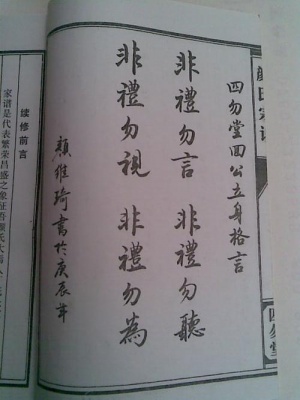 顏氏宗谱
四勿堂
四勿堂回公立身格言
非禮勿言 非禮勿聽
非禮勿視 非禮勿為
顏維琦書於庚辰年
续修前言
家谱是代表繁荣昌盛之象征吾颜氏大